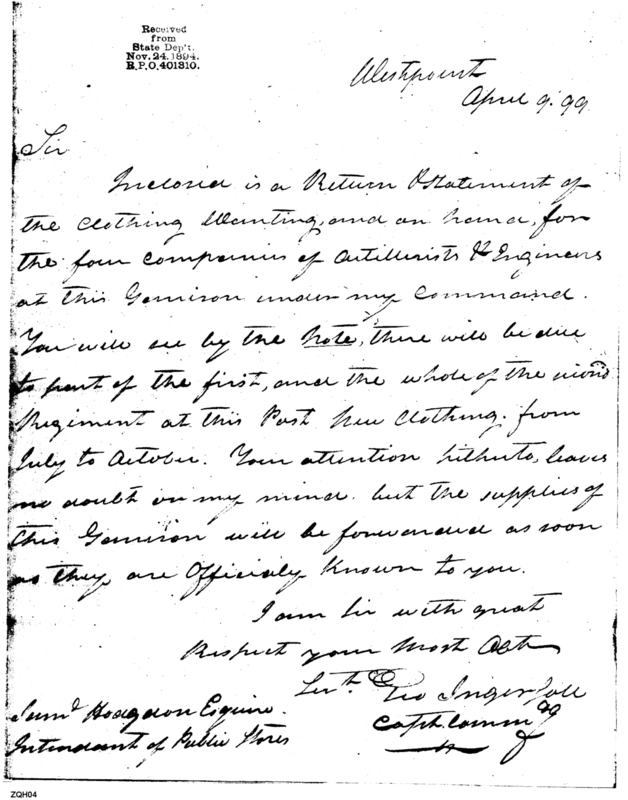 Received
from
State Dep't.
Nov. 24. 1894.
R.P.O. 401310.
Westpoint
April 9. 99
Sir
Inclosed is a Return & Statement of
the Clothing Wanting, and on hand, for
the four Companies of Artillerists & Engineers
at this Garrison under my Command.
You will see by the Note, there will be due
to part of the first, and the whole of the
Regiment at this Post New Clothing. from
July to October. Your attention hitherto, leaves
no doubt on my mind. but the supplies of
this Garrison will be forwarded as soon
as they are Officialy Known to you.
I am Sir with great
Respect your Most Obt
Servt.
Geo Ingersoll
Capt. Commg
Saml Hodgdon Esquire.
Intendant of Public Stores
ZQH04